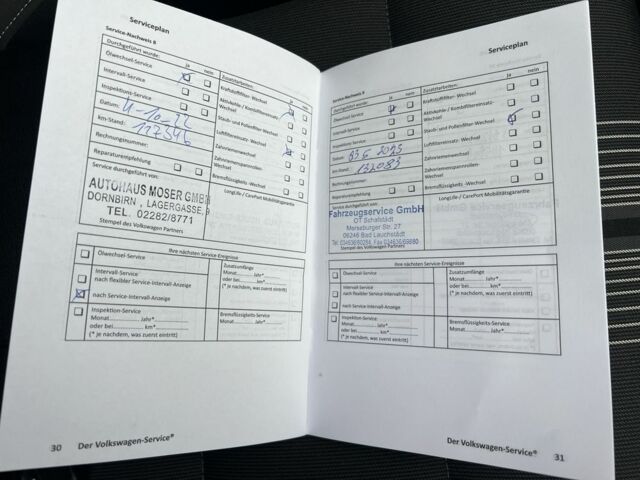 Serviceplan
Service-Nachweis 8
Durchgeführt wurde: ja nein Zusatzarbeiten: ja nein
Ölwechsel-Service Kraftstofffilter- Wechsel
Intervall-Service Aktivkohle / Kombifiltereinsatz-Wechsel
Inspektions-Service Staub- und Pollenfilter-Wechsel
Datum: 11-10-22 Luftfiltereinsatz- Wechsel
Km-Stand: 117546 Zahnriemenwechsel
Rechnungsnummer: Zahnriemenspannrollen-Wechsel
Reparaturempfehlung Bremsflüssigkeits -Wechsel
Service durchgeführt von: LongLife / CarePort Mobilitätsgarantie
AUTOHAUS MOSER GMBH
DORNBIRN , LAGERGASSE
TEL. 02282/8771
Stempel des Volkswagen Partners
Ihre nächsten Service-Ereignisse
Ölwechsel-Service Zusatzumfänge
Monat Jahr*
Intervall-Service oder bei km*
nach flexibler Service-Intervall-Anzeige (* je nachdem, was zuerst eintritt)
nach Service-Intervall-Anzeige
Inspektion-Service Bremsflüssigkeits-Service
Monat Jahr* Monat Jahr*
oder bei km*
(* je nachdem, was zuerst eintritt)
30 Der Volkswagen-Service®
Serviceplan
Service-Nachweis 9
Durchgeführt wurde: ja nein Zusatzarbeiten: ja nein
Ölwechsel-Service Kraftstofffilter- Wechsel
Intervall-Service Aktivkohle / Kombifiltereinsatz-Wechsel
Inspektions-Service Staub- und Pollenfilter-Wechsel
Datum: 2023 Luftfiltereinsatz- Wechsel
Km-Stand: 132083 Zahnriemenwechsel
Rechnungsnummer: Zahnriemenspannrollen-Wechsel
Reparaturempfehlung Bremsflüssigkeits -Wechsel
Service durchgeführt von: LongLife / CarePort Mobilitätsgarantie
Fahrzeugservice GmbH
OT Schafstädt
Merseburger Str. 27
06246 Bad Lauchstädt
Stempel des Volkswagen Partners
Ihre nächsten Service-Ereignisse
Ölwechsel-Service Zusatzumfänge
Monat Jahr*
Intervall-Service oder bei km*
nach flexibler Service-Intervall-Anzeige (* je nachdem, was zuerst eintritt)
nach Service-Intervall-Anzeige
Inspektion-Service Bremsflüssigkeits-Service
Monat Jahr* Monat Jahr*
oder bei km*
(* je nachdem, was zuerst eintritt)
Der Volkswagen-Service® 31